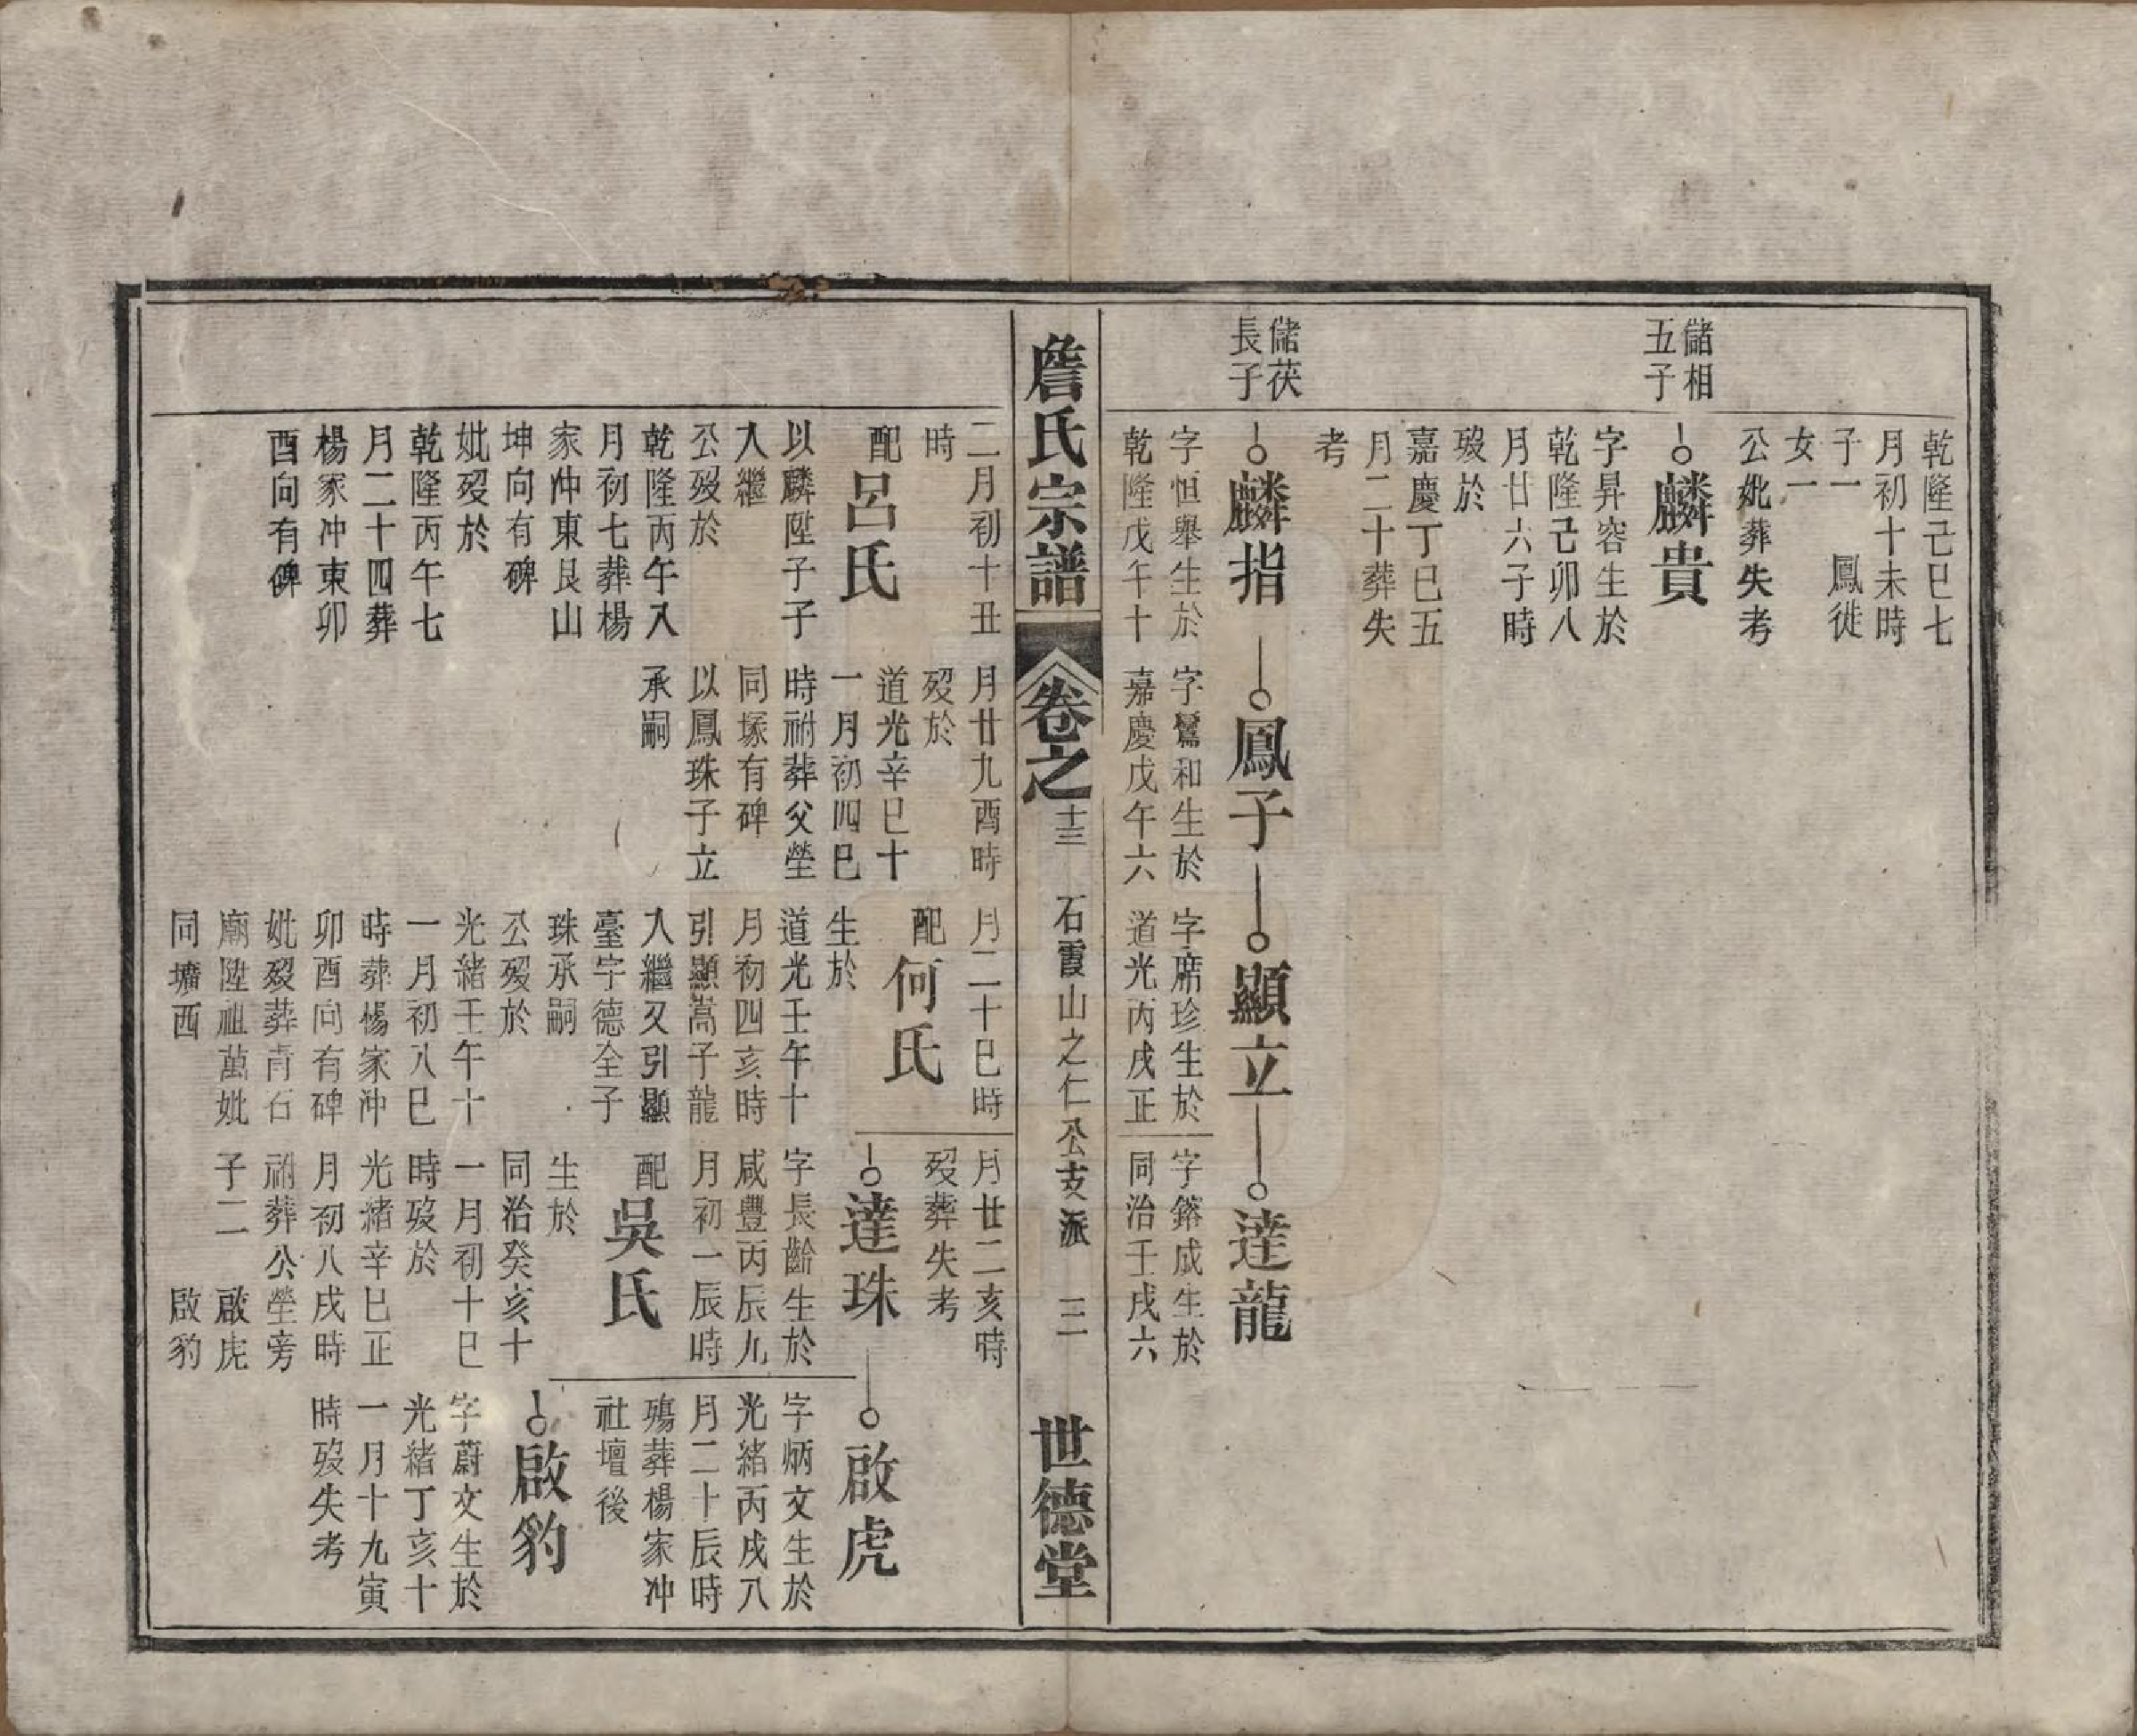 乾隆己巳七
月初十未時
子一　鳳徙
女一
公妣葬失考
儲相
五子
麟貴
字昇容生於
乾隆己卯八
月廿六子時
歿於
嘉慶丁巳五
月二十葬失
考
儲茯
長子
麟指
字恒舉生於
乾隆戊午十
鳳子
字鸞和生於
嘉慶戊午六
顯立
字席珍生於
道光丙戌正
達龍
字鎔成生於
同治壬戌六
詹氏宗譜
卷之十三
石霞山之仁公支派
三
世德堂
二月初十丑
時
配呂氏
以麟陞子子
入繼
公歿於
乾隆丙午八
月初七葬楊
家沖東艮山
坤向有碑
妣歿於
乾隆丙午七
月二十四葬
楊家沖東卯
酉向有碑
月廿九酉時
歿於
道光辛巳十
一月初四巳
時祔葬父塋
同塚有碑
以鳳珠子立
承嗣
月二十巳時
配何氏
生於
道光壬午十
月初四亥時
引顯嵩子龍
入繼又引顯
臺字德全子
珠承嗣
公歿於
光緒壬午十
一月初八巳
時葬楊家沖
卯酉向有碑
妣歿葬青石
廟陞祖萬妣
同壙西
月廿二亥時
歿葬失考
達珠
字長齡生於
咸豐丙辰九
月初一辰時
配吳氏
生於
同治癸亥十
一月初十巳
時歿於
光緒辛巳正
月初八戌時
祔葬公塋旁
子二　啟虎
啟豹
啟虎
字炳文生於
光緒丙戌八
月二十辰時
殤葬楊家沖
社壇後
啟豹
字蔚文生於
光緒丁亥十
一月十九寅
時歿失考